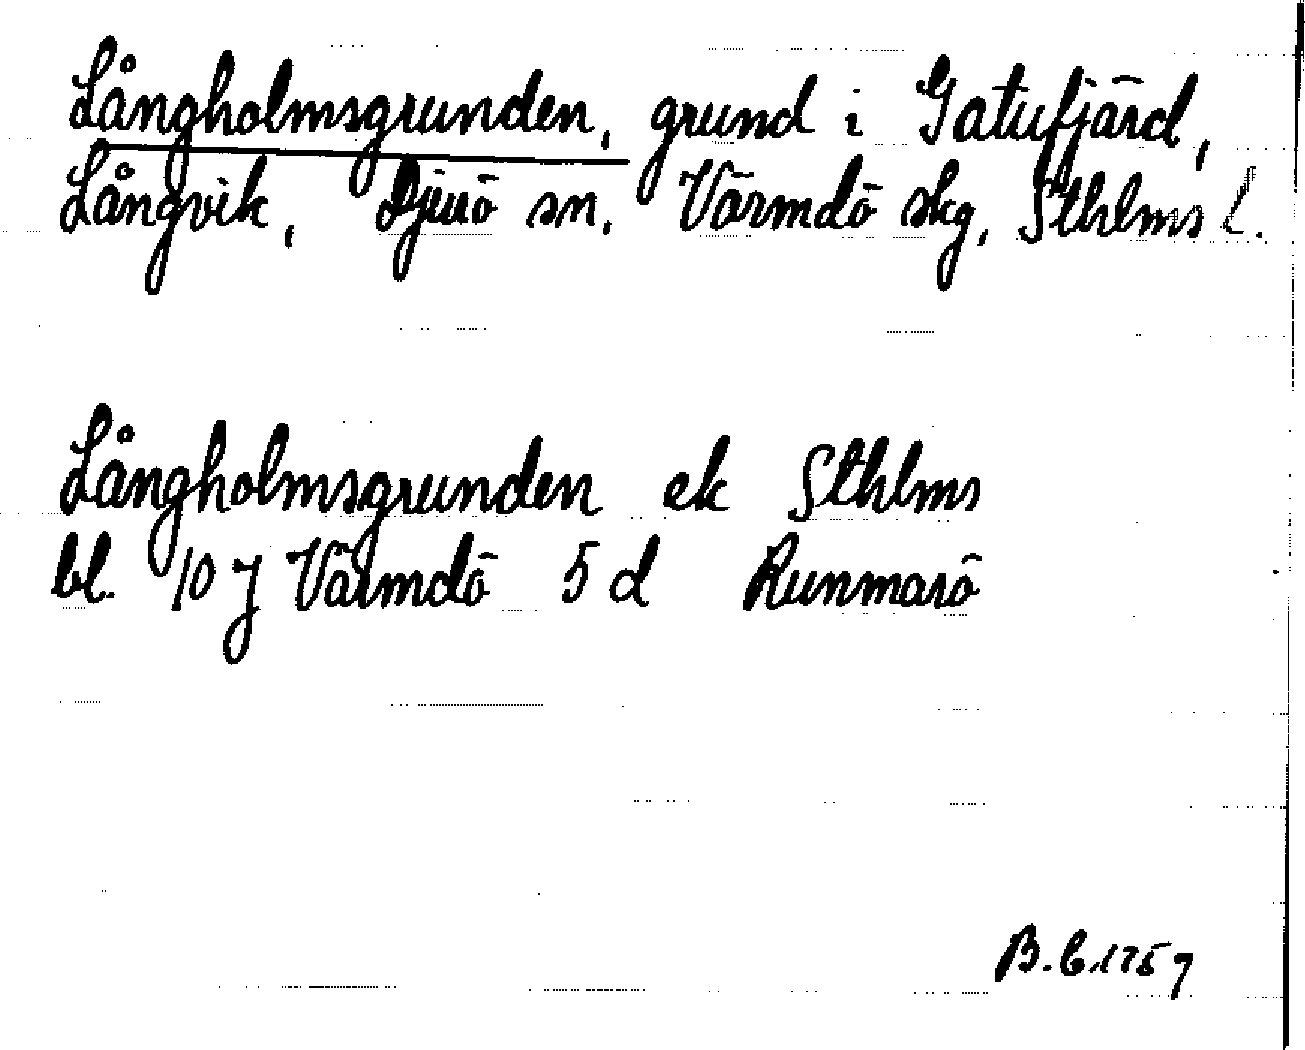 Långholmsgrunden, grund i Gatufjärd,
Långvik, Djurö sn. Värmdö skg, Sthlms l.
Långholmsgrunden ek Sthlms
bl. 10 J Värmdö 5 d Runmarö